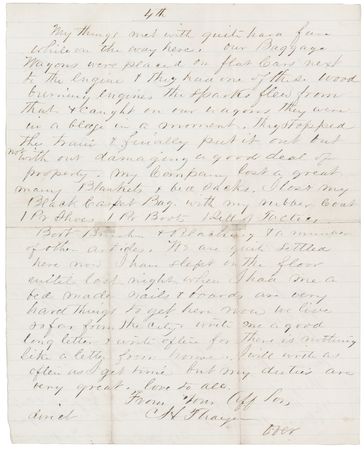 4th
My things met with quite hard fare
while on the way here. our Baggage
Wagons were placed on flat Cars next
to the Engine & they had one of these wood
burning engines the sparks flew from
that & caught on our wagons they were
in a blaze in a moment. They stopped
the train & finally put it out but
not with out damaging a good deal of
property. My Company lost a great
many Blankets & I lost my
Black Carpet Bag with my rubber Coat
1 Pr Shoes 1 Pr Boots
Boot Brush & Blacking & a number
of other articles. We are quite settled
here now I have slept on the floor
until last night when I had me a
bed made nails & boards are very
hard things to get here now we live
so far from the City. write me a good
long letter & write often for there is nothing
like a letter from home. I will write as
often as I get time but my duties are
very great. love to all.
From Your Aff Son
direct C H Thayer
over